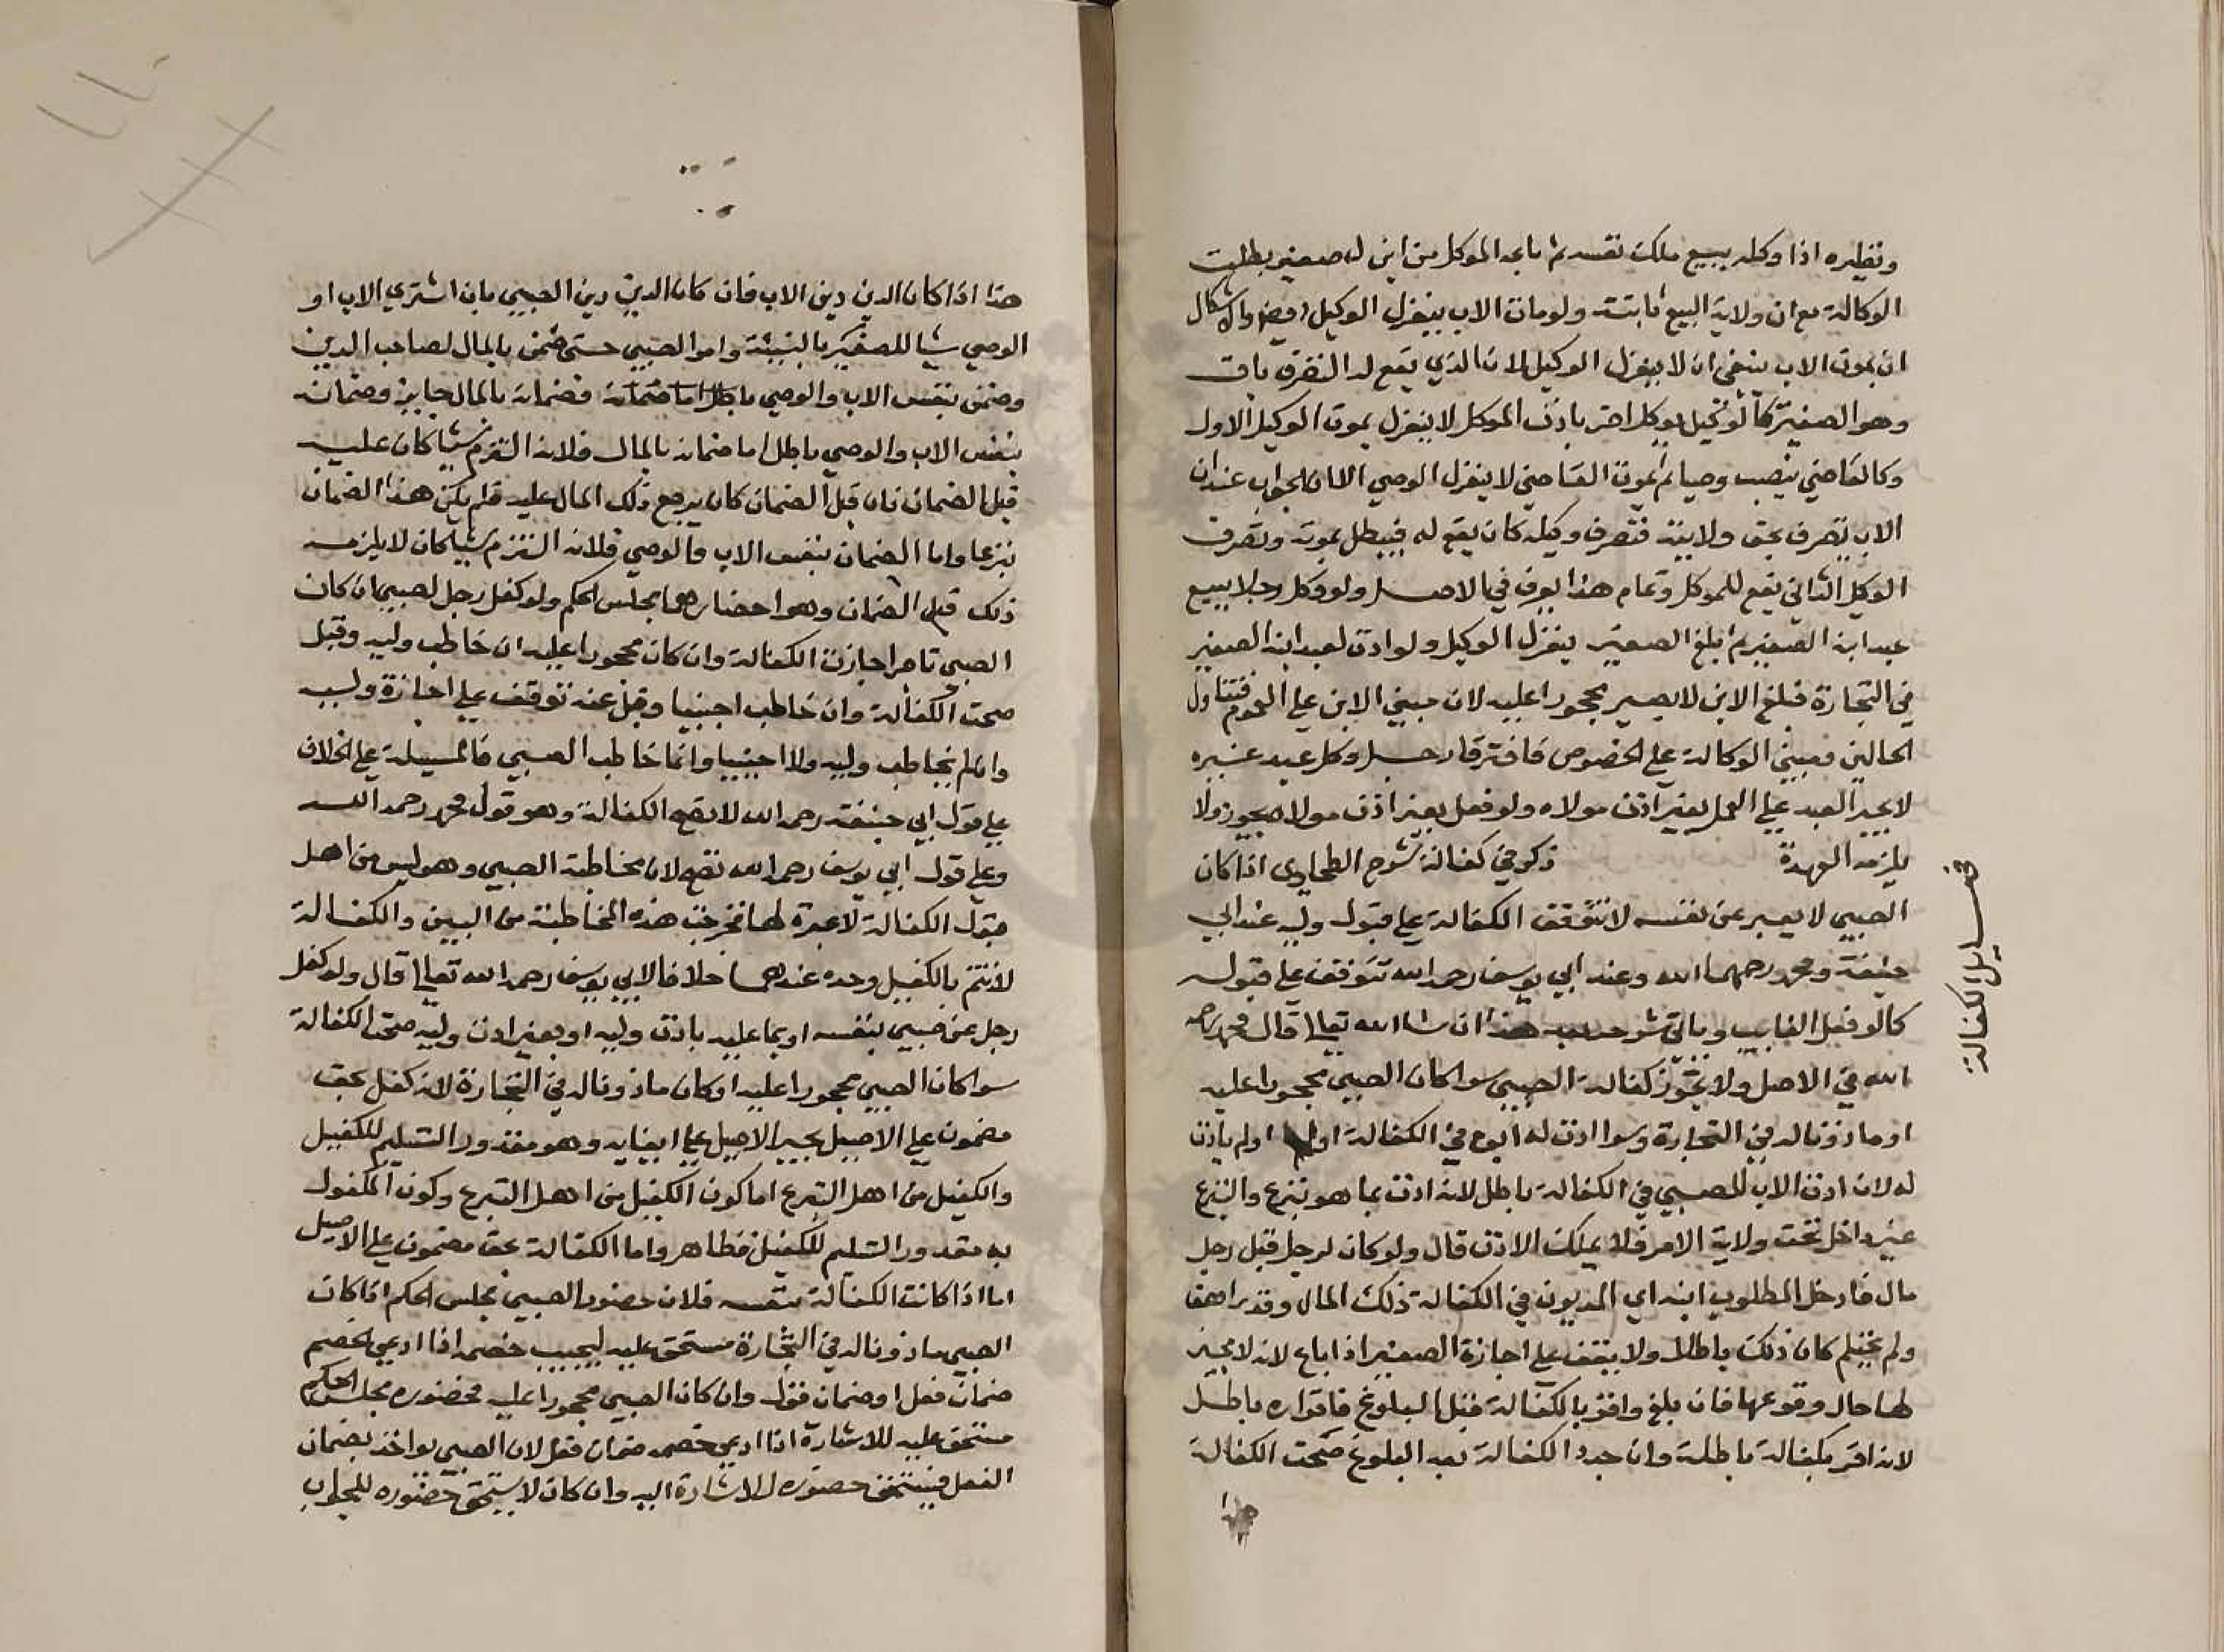 ونظيره اذا وكله ببيع ملك نفسه ثم باعه الموكل من ابن له صغير بطلت
الوكالة مع ان ولاية البيع ثابتة ولو مات الاب ينعزل الوكيل والاشكال
ان بموت الاب ينبغي ان لا ينعزل الوكيل لان الذي يقع له التصرف باق
وهو الصغير كما لو وكيل يوكل اخر باذن الموكل لا ينعزل بموت الوكيل الاول
وكالقاضي ينصب وصيا ثم يموت القاضي لا ينعزل الوصي الا ان الجواب عنه ان
الاب يتصرف بحق ولايته فتصرف وكيله كان يقع له فيبطل بموته وتصرف
الوكيل الثاني يقع للموكل وتمام هذا يعرف في الاصل ولو وكل رجلا ببيع
عبد ابنه الصغير ثم بلغ الصغير ينعزل الوكيل ولو اذن لعبد ابنه الصغير
في التجارة فبلغ الابن لا يصير محجورا عليه لان مبني الاذن على العموم فتناول
الحالين ومبني الوكالة على الخصوص فافترقا رجل وكل عبد غيره
لا يجبر العبد على العمل بغير اذن مولاه ولو فعل بغير اذن مولاه يجوز ولا
يلزمه العهدة ذكر في كفالة شرح الطحاوي اذا كان
الصبي لا يعبر عن نفسه لا تتوقف الكفالة على قبول وليه عند ابي
حنيفة ومحمد رحمهما الله وعند ابي يوسف رحمه الله تتوقف على قبوله
كالو فعل الغايب وياتي شرحه هذا ان شا الله تعالى قال محمد رحمه
الله في الاصل ولا يجوز كفالة الصبي سوا كان الصبي محجورا عليه
او ماذونا له في التجارة وسوا اذن له ابوه في الكفالة او لم ياذن
له لان اذن الاب للصبي في الكفالة باطل لانه اذن بما هو تبرع والتبرع
غير داخل تحت ولاية الامر فلا يملك الاذن قال ولو كان لرجل قبل رجل
مال فادخل المطلوب ابنه اي المديون في الكفالة ذلك المال وقد راهق
ولم يحتلم كان ذلك باطلا ولا يتقف على اجازة الصغير اذا بلغ لانه لا مجيز
لها حال وقوعها فان بلغ واقر بالكفالة قبل البلوغ فاقراره باطل
لانه اقر بكفالة باطلة وان جدد الكفالة بعد البلوغ صحت الكفالة
هذا
مسايل الكفالة
هذا اذا كان الدين دين الاب فان كان الدين دين الصبي بان اشتري الاب او
الوصي شيا للصغير بالنسيئة وامر الصبي حتى ضمن بالمال لصاحب الدين
وضمن بنفس الاب والوصي فضمانه بالمال جايز وضمانه
بنفس الاب والوصي باطل اما ضمانه بالمال فلانه التزم شيا كان عليه
قبل الضمان فان قبل الضمان كان يرجع ذلك المال عليه فلم يكن هذا الضمان
تبرعا واما الضمان بنفس الاب والوصي فلانه التزم شيا كان لا يلزمه
ذلك قبل الضمان وهو احضارهما مجلس الحكم ولو كفل رجل لصبي ان كان
الصبي تاجرا جازت الكفالة وان كان محجورا عليه ان خاطب وليه وقبل
صحت الكفالة وان خاطب اجنبيا وقبل عنه توقف على اجازة وليه
وان لم يخاطب وليه ولا اجنبيا وانما خاطب الصبي فالمسيلة على الخلاف
على قول ابي حنيفة رحمه الله لا تصح الكفالة وهو قول محمد رحمه الله
وعلى قول ابي يوسف رحمه الله تصح لان مخاطبة الصبي وهو ليس من اهل
قبول الكفالة لا عبرة لها فخرجت هذه المخاطبة من البين والكفالة
لا تتم بالكفيل وحده عندهما خلافا لابي يوسف رحمه الله تعالى قال ولو كفل
رجل عن صبي بنفسه او بما عليه باذن وليه او بغير اذن وليه صحت الكفالة
سوا كان الصبي محجورا عليه او كان ماذونا له في التجارة لانه كفل بحق
مضمون على الاصيل يجبر الاصيل على ايفايه وهو مقدور التسليم للكفيل
والكفيل من اهل التبرع اما كون الكفيل من اهل التبرع وكون المكفول
به مقدور التسليم للكفيل فظاهر واما الكفالة بحق مضمون على الاصيل
اما اذا كانت الكفالة بنفسه فلان حضور الصبي مجلس الحكم اذا كان
الصبي ماذونا له في التجارة مستحق عليه ليجيب خصمه اذا ادعي الخصم
ضمان فعل او ضمان قول وان كان الصبي محجورا عليه فحضوره مجلس الحكم
مستحق عليه للاشارة اذا ادعي خصمه ضمان فعل لان الصبي يواخذ بضمان
الفعل فيستحق حضوره للاشارة اليه وان كان لا يستحق حضوره للجواب